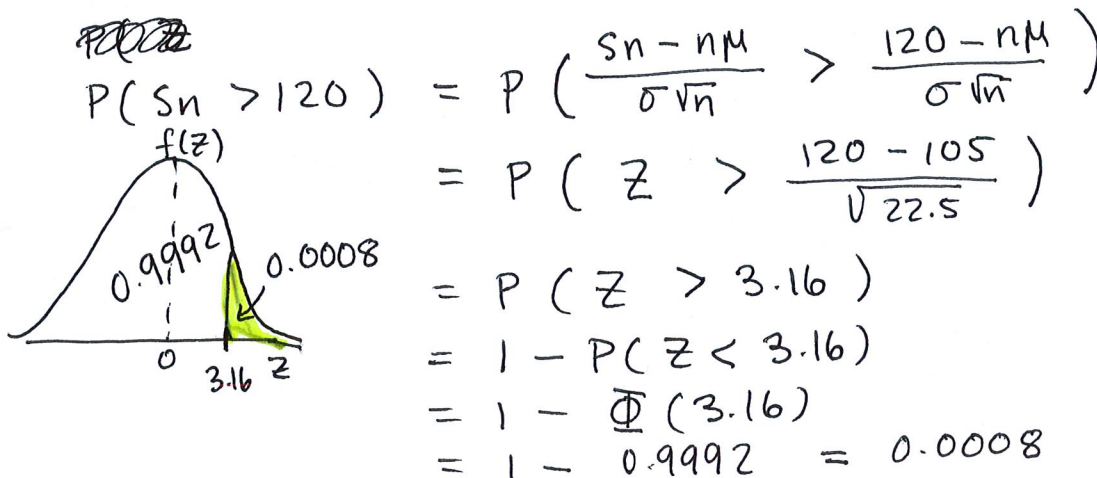 P(Sn > 120) = P( (Sn - nμ)/(σ√n) > (120 - nμ)/(σ√n) )
= P( Z > (120 - 105)/√22.5 )
= P( Z > 3.16 )
= 1 - P( Z < 3.16 )
= 1 - Φ (3.16)
= 1 - 0.9992 = 0.0008
f(Z)
0.9992
0.0008
0
3.16
Z